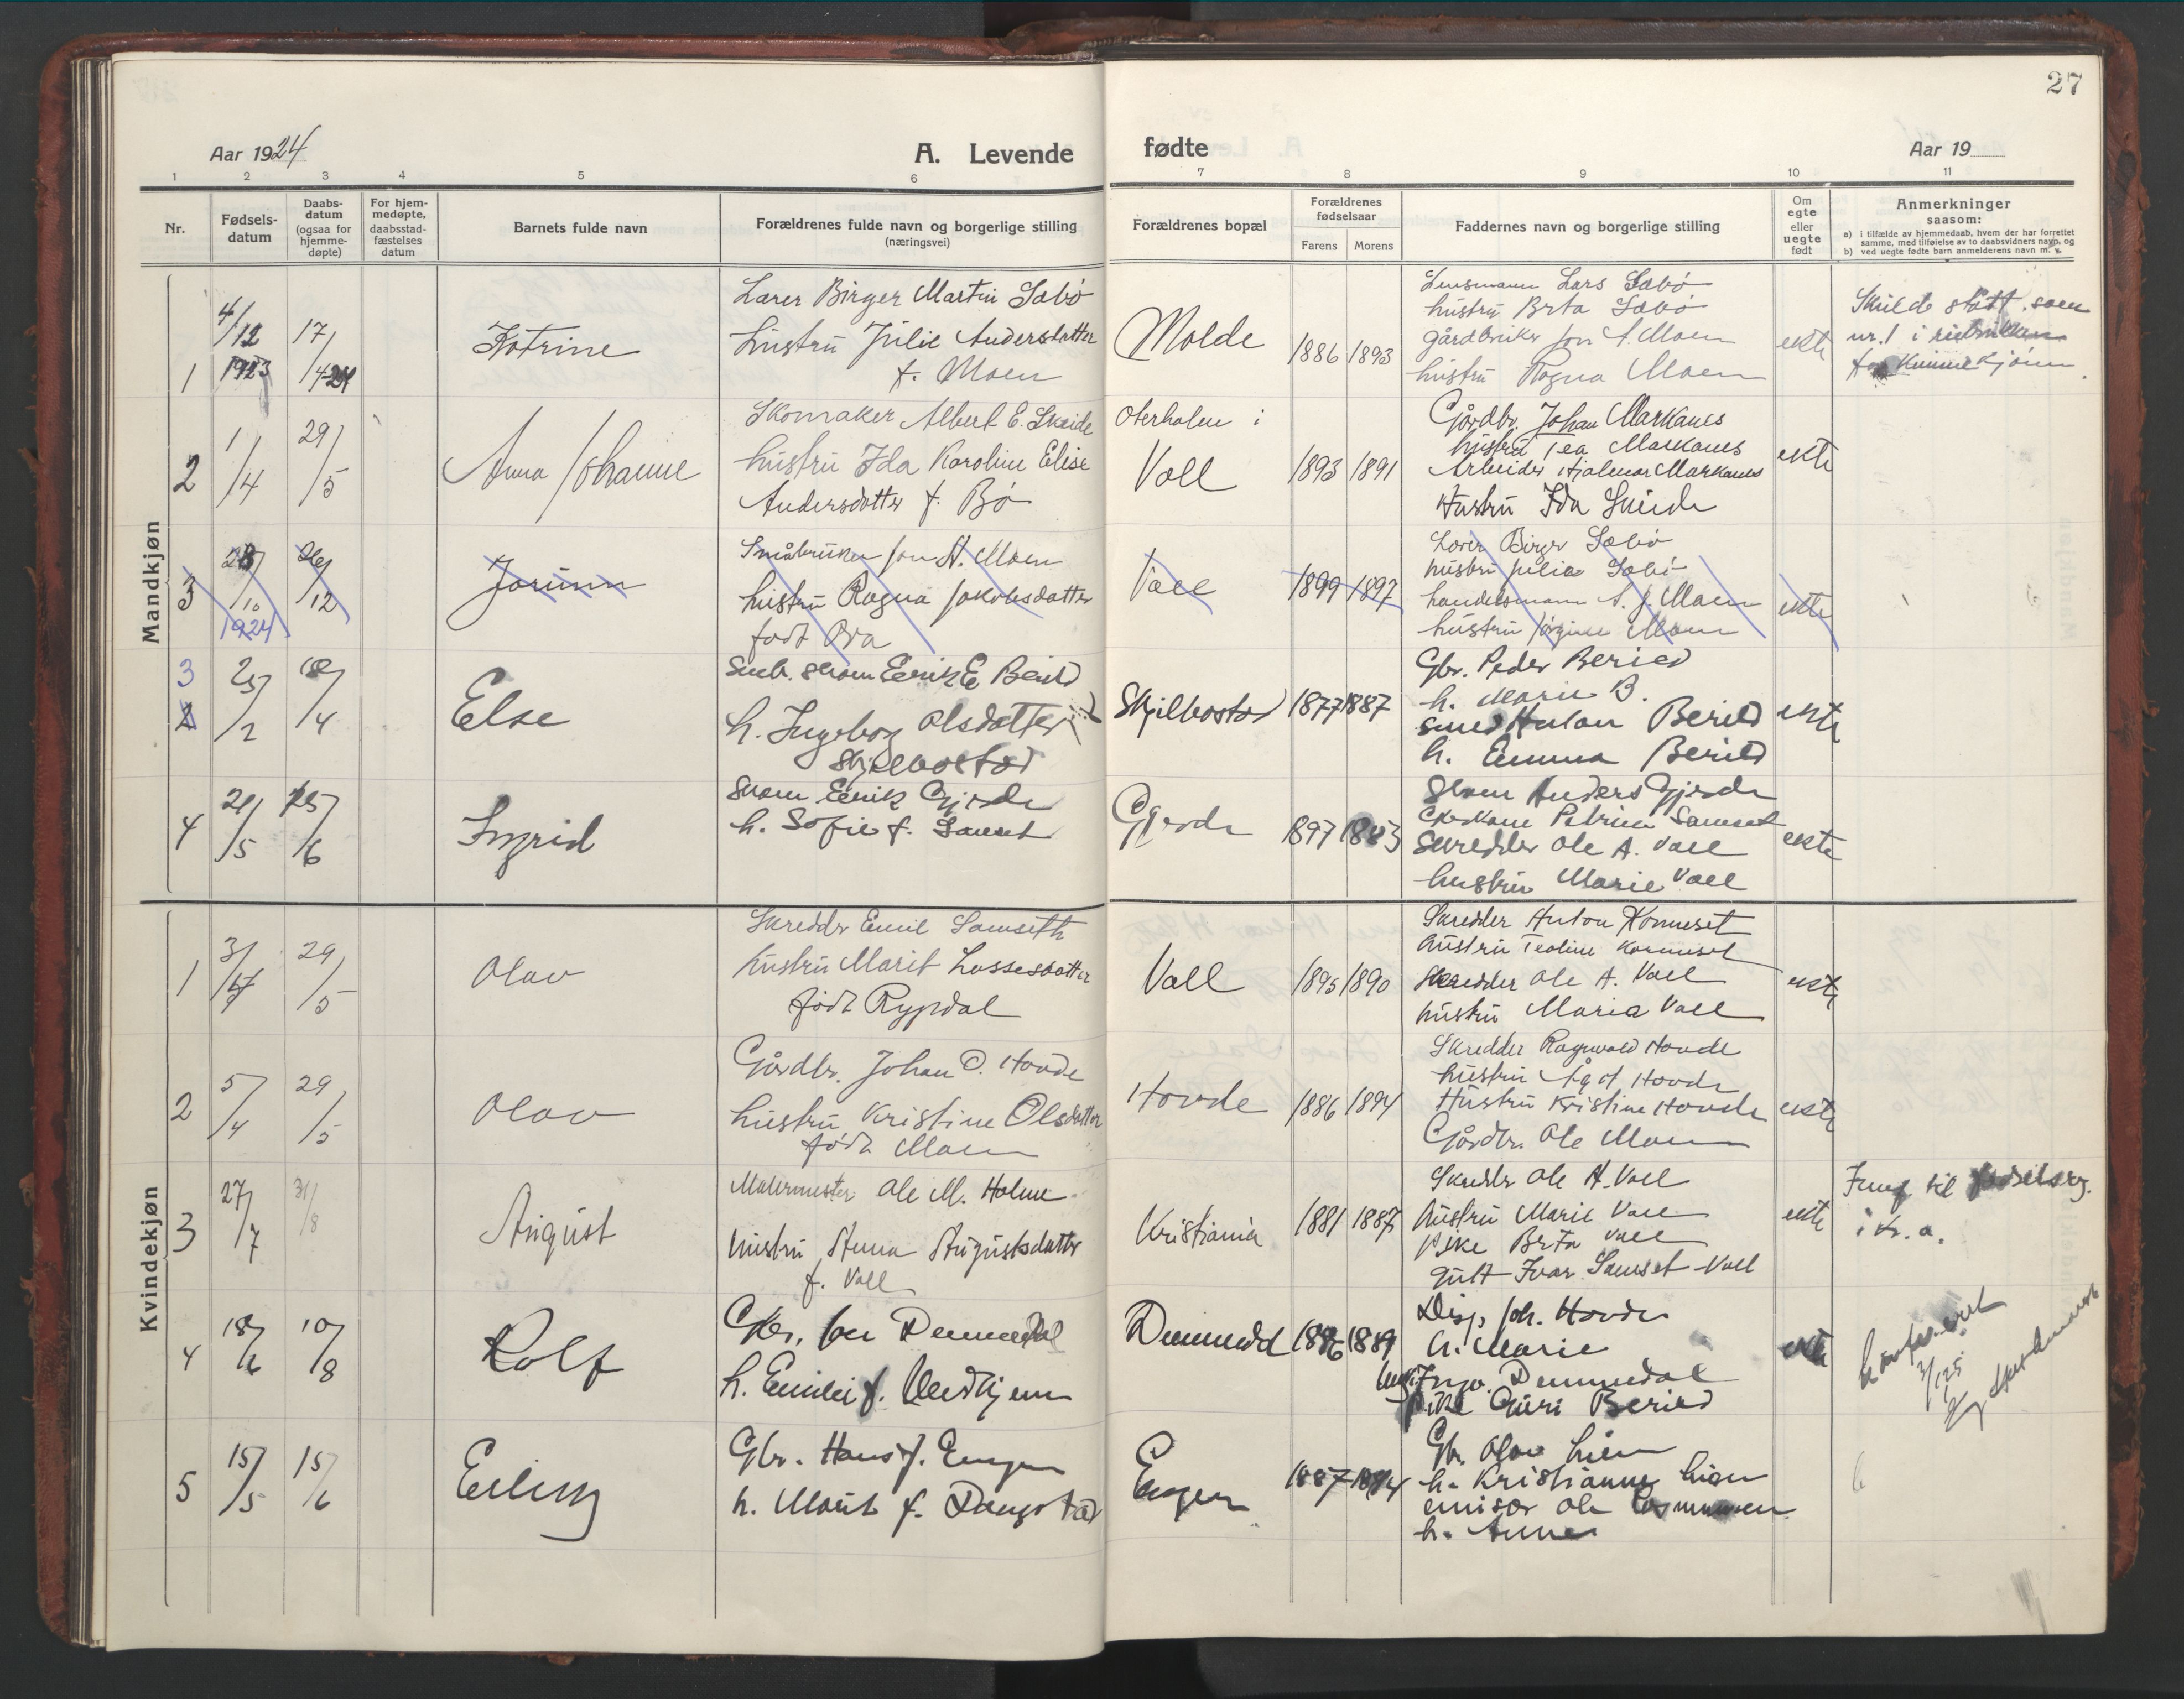 27
Aar 1924
A. Levende
fødte
Aar 19
1 2 3 4 5 6 7 8 9 10 11
Nr.
Fødsels-
datum
Daabs-
datum
(ogsaa for
hjemme-
døpte)
For hjem-
medøpte,
daabsstad-
fæstelses
datum
Barnets fulde navn
Forældrenes fulde navn og borgerlige stilling
(næringsvei)
Forældrenes bopæl
Forældrenes
fødselsaar
Farens Morens
Faddernes navn og borgerlige stilling
Om
egte
eller
uegte
født
Anmerkninger
saasom:
a) i tilfælde av hjemmedaab, hvem der har forrettet
samme, med tilføielse av to daabsvidners navn, og
b) ved uegte fødte barn anmelderens navn m. v.
Mandkjøn
1
4/12
1923
17/4 24
Katrine
Lærer Birger Martin Sæbø
hustru Julie Andersdatter
f. Moen
Molde
1886 1893
Lensmann Lars Sæbø
hustru Brta Sæbø
gårdbruker Jon A. Moen
hustru Ragna Moen
ekte
Skulde stått som
nr. 1 i rubrikken
for kvinnekjønn.
2
1/4
29/5
Anna Johanne
Skomaker Albert E. Skeide
hustru Ida Karoline Elise
Andersdatter f. Bø
Oterholm i
Voll
1893 1891
Gårdbr. Johan Markanes
hustru Tea Markanes
Arbeider Hjalmar Markanes
Hustru Ida Skeide
ekte
3
28/10
1924
26/12
Jorunn
Småbruker Jon A. Moen
hustru Ragna Jakobsdatter
født Bra
Voll
1899 1897
Lærer Birger Sæbø
hustru Julie Sæbø
handelsmann A. J. Moen
hustru Jørgine Moen
ekte
3
25/2
18/4
Else
Eerik E Berild
h. Ingeborg Olsdatter
Skjelbostad
Skjelbostad
1877 1887
Gbr. Peder Berild
h. Marie B.
smed Anton Berild
h. Emma Berild
ekte
4
21/5
15/6
Ingrid
Skom Eerik Gjerde
h. Sofie f. Samset
Gjerde
1897 1883
Skom Anders Gjerde
Petrine Samset
Skredder Ole A. Voll
hustru Marie Voll
ekte
Kvindekjøn
1
29/5
Olav
Skredder Emil Samseth
hustru Marit Lassesdatter
født Rypdal
Voll
1895 1890
Skredder Anton Kormeset
hustru Teoline Kormeset
Skredder Ole A. Voll
hustru Maria Voll
ekte
2
5/4
29/5
Olav
Gårdbr. Johan O. Hovde
hustru Kristine Olsdatter
født Moen
Hovde
1886 1894
Skredder Ragnvald Hovde
hustru Ågot Hovde
Hustru Kristine Hovde
Gårdbr. Ole Moen
ekte
3
27/7
31/8
August
Malermester Ole M. Holme
hustru Anna Augustsdatter
f. Voll
Kristiania
1881 1887
Skredder Ole A. Voll
hustru Marie Voll
pike Brta Voll
gutt Ivar Samset Voll
ekte
til fødselsreg.
i Kr. a.
4
18/6
10/8
Rolf
h. Emilie f.
1889
Disp. Joh. Hovde
h. Marie
pike Guri Berild
ekte
5
15/5
15/6
Erling
Gbr. Hans J. Engen
h. Marit f. Daugstad
Engen
1887
Gbr. Olav Lien
h. Kristianne Lien
emisær Ole Rasmussen
h. Anne